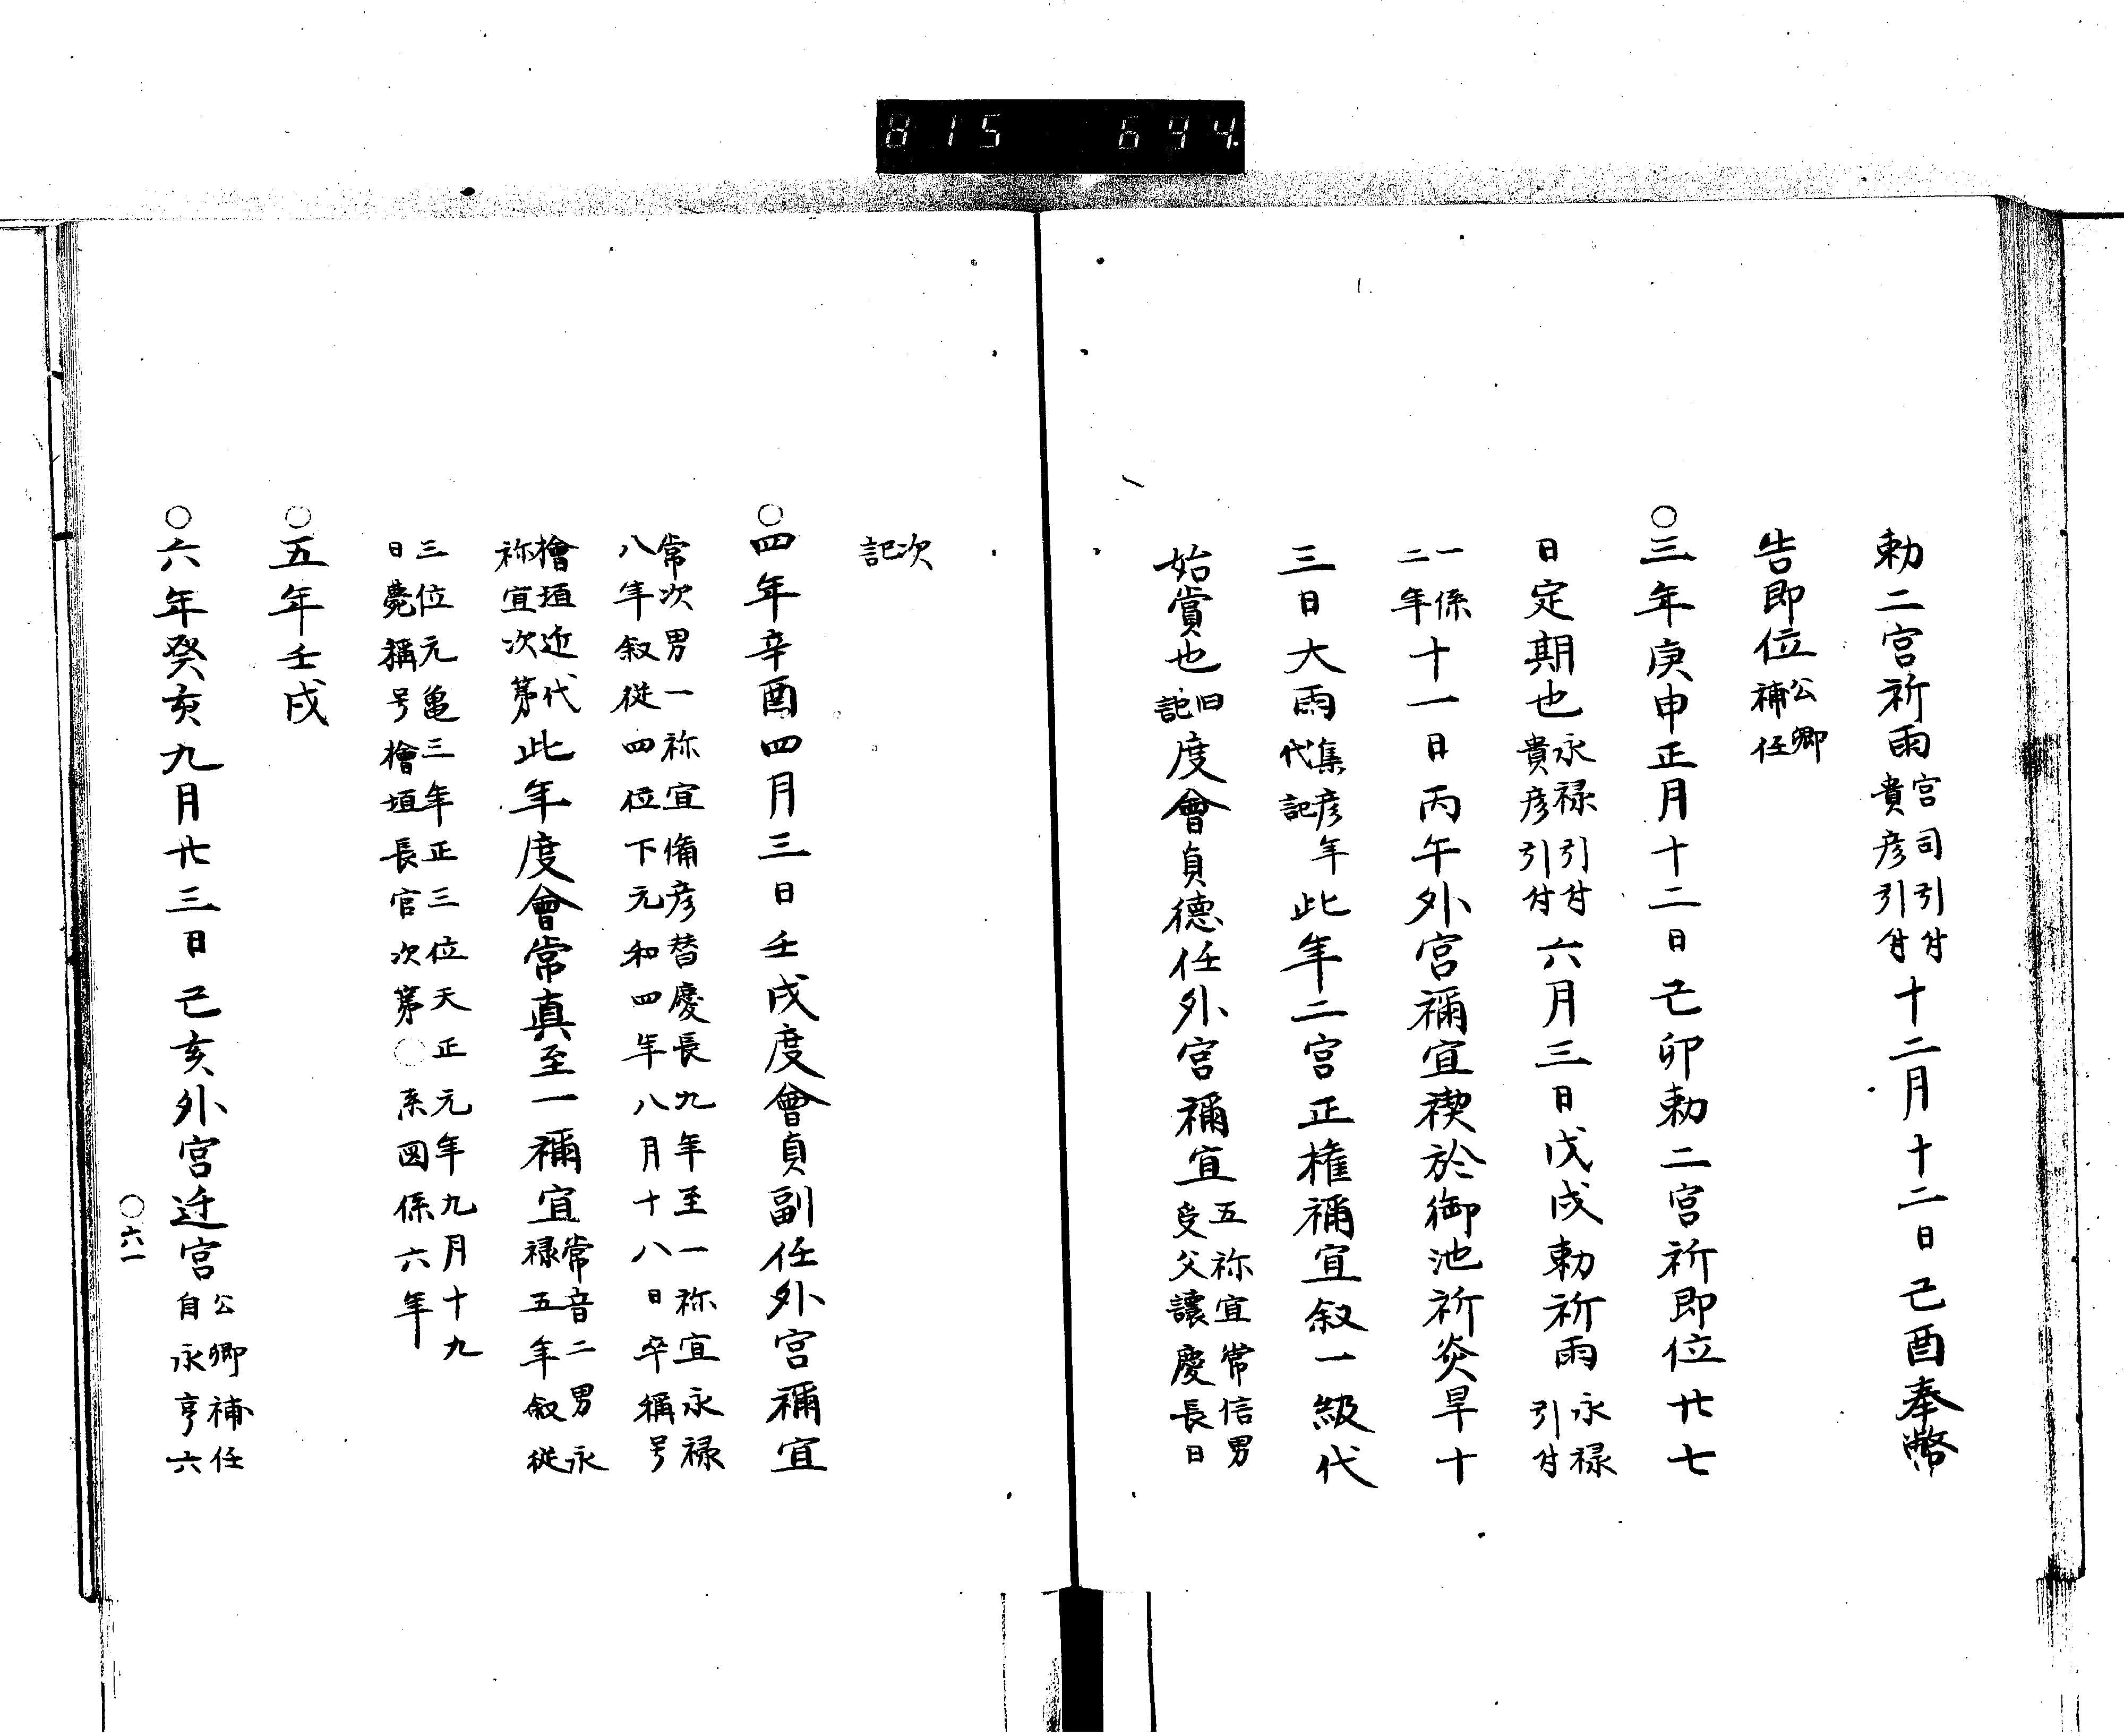 815 644
勅二宮祈雨宮司引付貴彦引付十二月十二日己酉奉幣
告即位公卿補任
○三年庚申正月十二日己卯勅二宮祈即位廿七
日定期也永禄引付貴彦引付六月三日戊戌勅祈雨永禄引付
一係二年十一日丙午外宮禰宜禊於御池祈炎旱十
三日大雨集彦年代記此年二宮正権禰宜叙一級代
始賞也旧記度會貞德任外宮禰宜五祢宜常信男受父譲慶長日
次記
○四年辛酉四月三日壬戌度會貞副任外宮禰宜
常次男一祢宜備彦替慶長九年至一祢宜永禄八年叙從四位下元和四年八月十八日卒稱号
檜垣近代祢宜次第此年度會常真至一禰宜常音二男永禄五年叙從
三位元亀三年正三位天正元年九月十九日薨稱号檜垣長官次第○系図係六年
○五年壬戌
○六年癸亥九月廿三日己亥外宮迁宮公卿補任自永亨六
○六一